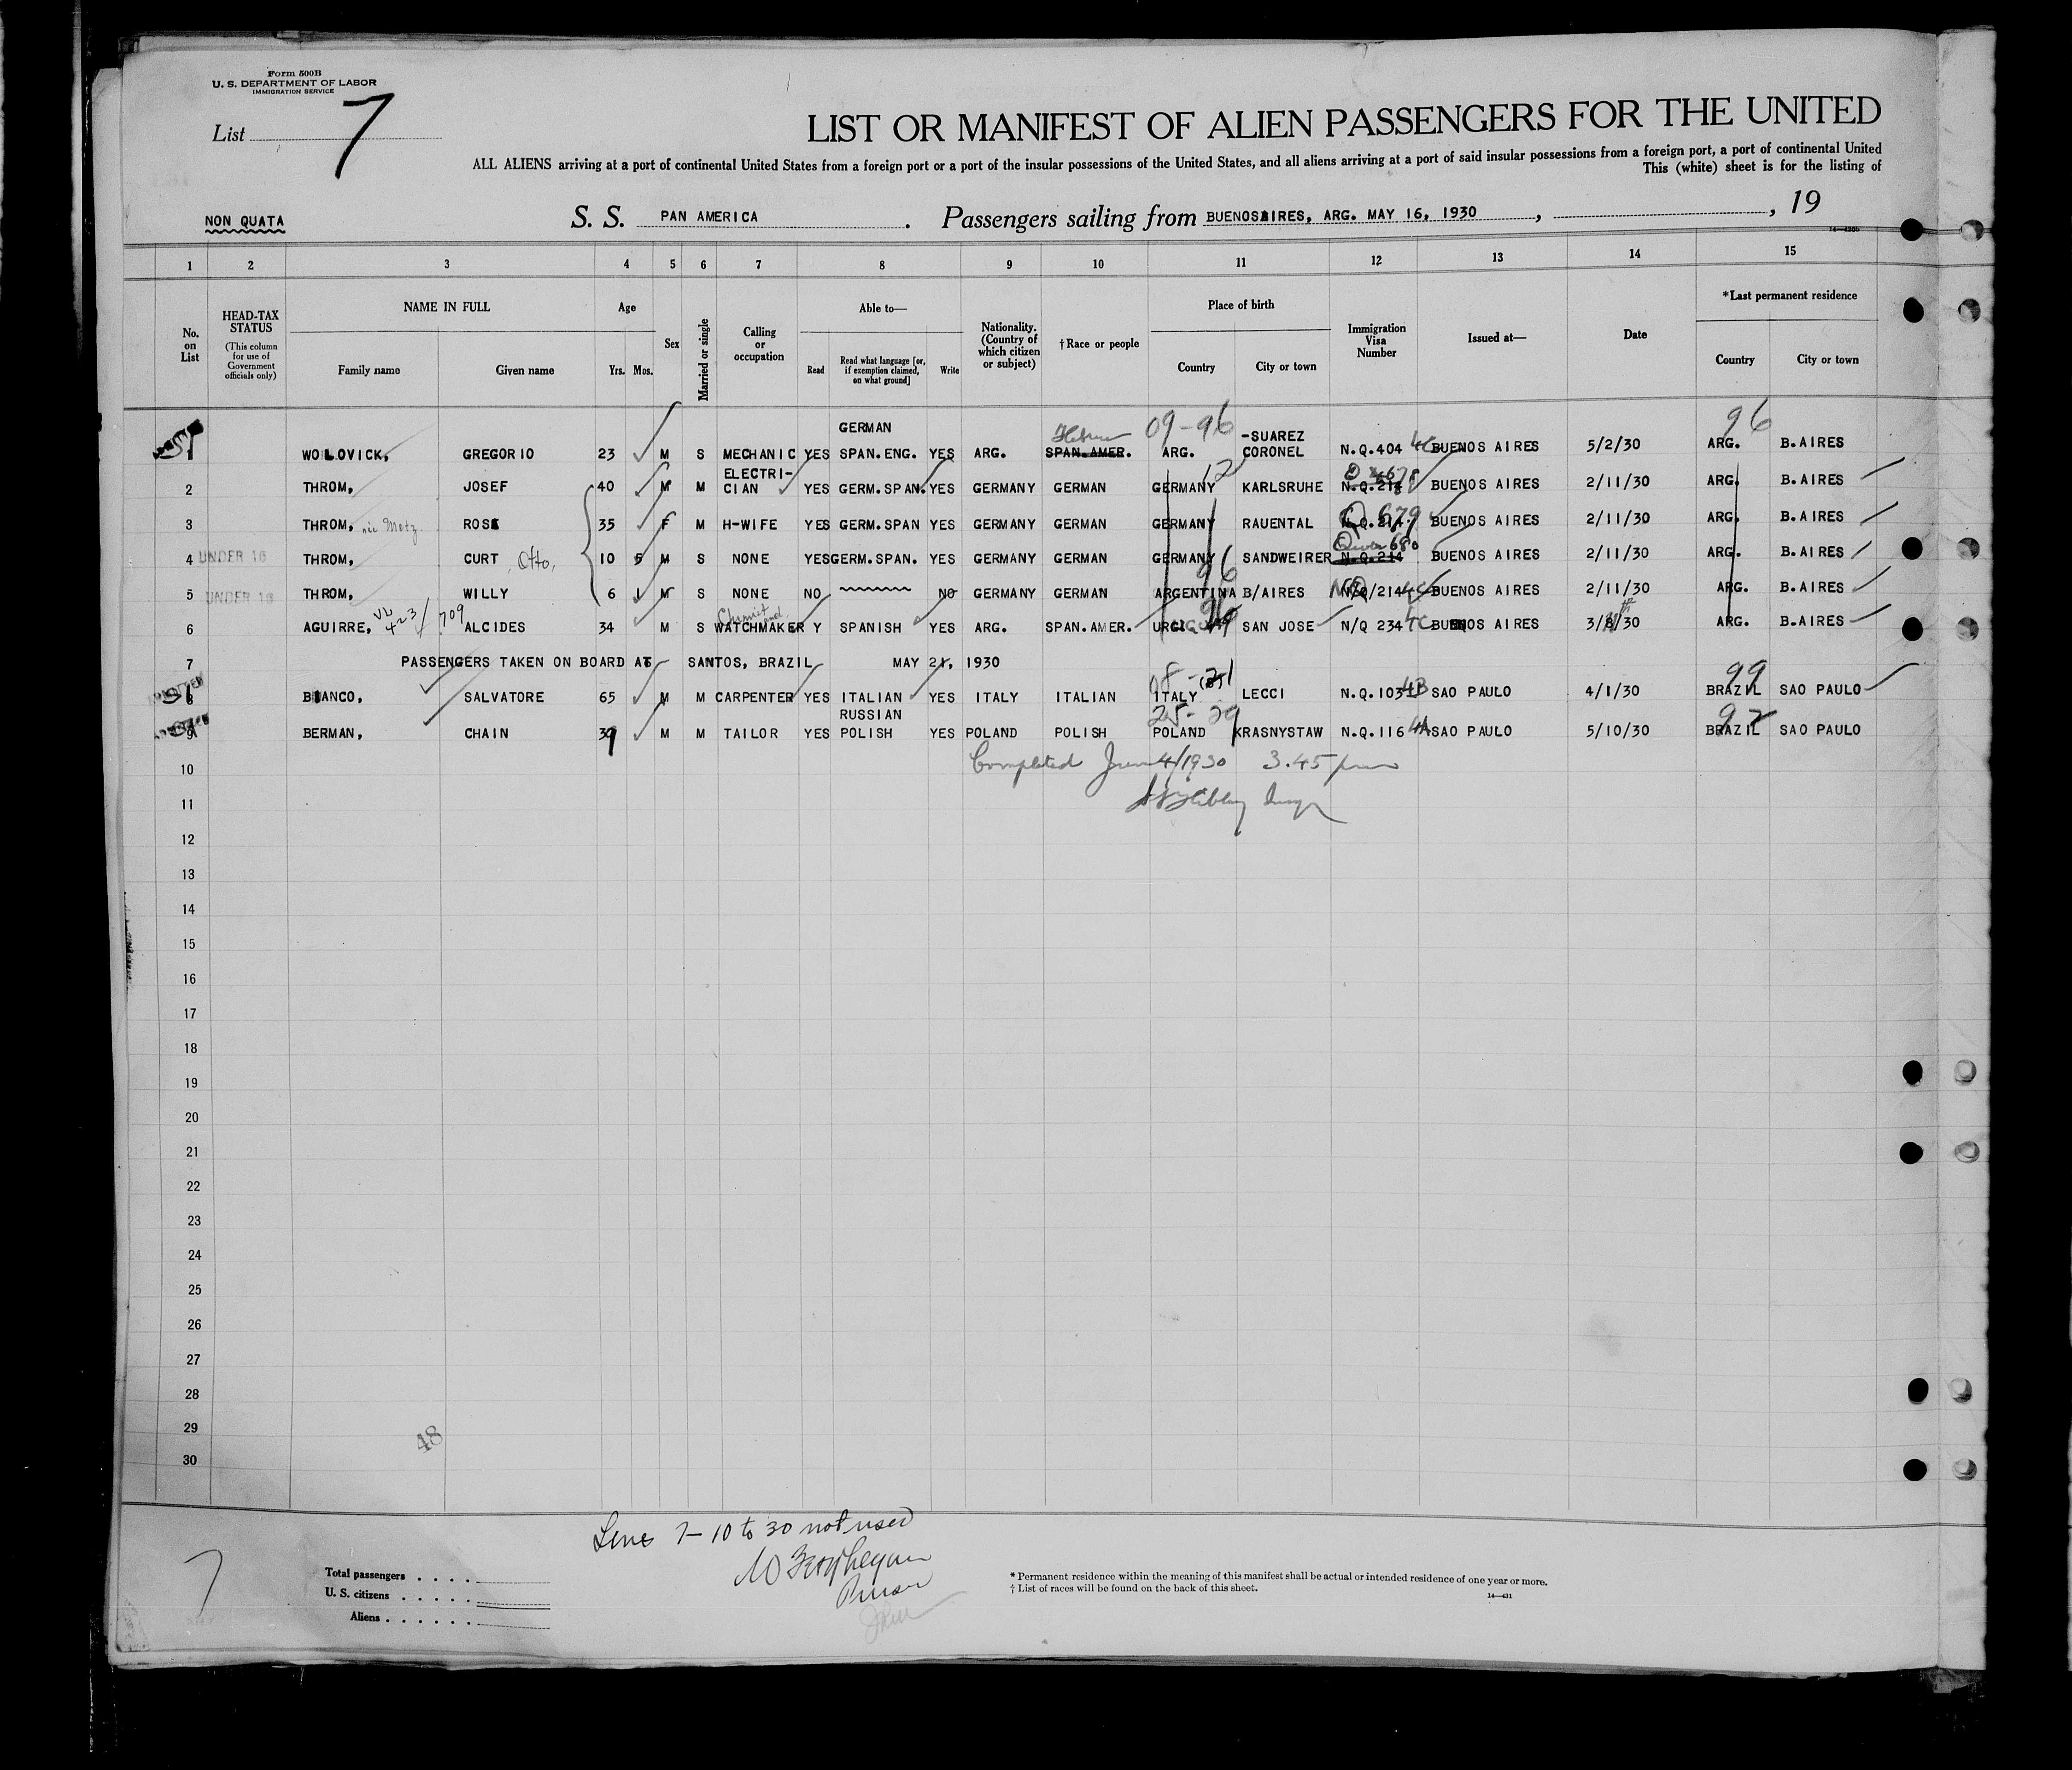 Form 500B
U. S. DEPARTMENT OF LABOR
IMMIGRATION SERVICE
List 7
LIST OR MANIFEST OF ALIEN PASSENGERS FOR THE UNITED
ALL ALIENS arriving at a port of continental United States from a foreign port or a port of the insular possessions of the United States, and all aliens arriving at a port of said insular possessions from a foreign port, a port of continental United
This (white) sheet is for the listing of
NON QUATA
S. S. PAN AMERICA . Passengers sailing from BUENOSAIRES, ARG. MAY 16, 1930 , , 19
1 2 3 4 5 6 7 8 9 10 11 12 13 14 15
No. on List
HEAD-TAX STATUS (This column for use of Government officials only)
NAME IN FULL
Family name Given name
Age
Yrs. Mos.
Sex
Married or single
Calling or occupation
Able to—
Read Read what language [or, if exemption claimed, on what ground] Write
Nationality. (Country of which citizen or subject)
†Race or people
Place of birth
Country City or town
Immigration Visa Number
Issued at—
Date
*Last permanent residence
Country City or town
GERMAN Hebrew 09-96 -SUAREZ 96
1 WOLOVICK, GREGORIO 23 M S MECHANIC YES SPAN.ENG. YES ARG. SPAN.AMER. ARG. CORONEL N.Q.404 4C BUENOS AIRES 5/2/30 ARG. B.AIRES
2 THROM, JOSEF 40 M M ELECTRI-CIAN YES GERM.SPAN. YES GERMANY GERMAN GERMANY 12 KARLSRUHE N.Q.214 678 BUENOS AIRES 2/11/30 ARG. B.AIRES
3 THROM, née Metz ROSE 35 F M H-WIFE YES GERM.SPAN YES GERMANY GERMAN GERMANY RAUENTAL N.Q.214 Q 679 BUENOS AIRES 2/11/30 ARG. B.AIRES
4 UNDER 16 THROM, CURT Otto, 10 5 M S NONE YES GERM.SPAN. YES GERMANY GERMAN GERMANY SANDWEIRER N.Q.214 680 BUENOS AIRES 2/11/30 ARG. B.AIRES
5 UNDER 16 THROM, WILLY 6 1 M S NONE NO NO GERMANY GERMAN ARGENTINA 96 B/AIRES N/Q/214 4C BUENOS AIRES 2/11/30 ARG. B.AIRES
6 AGUIRRE, VL 423/709 ALCIDES 34 M S Chemist and WATCHMAKER Y SPANISH YES ARG. SPAN.AMER. SAN JOSE N/Q 234 4C BUENOS AIRES 3/8/30 ARG. B.AIRES
7 PASSENGERS TAKEN ON BOARD AT SANTOS, BRAZIL MAY 21, 1930
8 BIANCO, SALVATORE 65 M M CARPENTER YES ITALIAN YES ITALY ITALIAN ITALY LECCI N.Q.103 4B SAO PAULO 4/1/30 BRAZIL 99 SAO PAULO
RUSSIAN 25-29
9 BERMAN, CHAIN 39 M M TAILOR YES POLISH YES POLAND POLISH POLAND KRASNYSTAW N.Q.116 4A SAO PAULO 5/10/30 BRAZIL SAO PAULO
10 Completed June 4/1930 3.45 pm
11
12
13
14
15
16
17
18
19
20
21
22
23
24
25
26
27
28
29
30
48
Lines 7-10 to 30 not used
Purser
7
Total passengers
U. S. citizens
Aliens
* Permanent residence within the meaning of this manifest shall be actual or intended residence of one year or more.
† List of races will be found on the back of this sheet.
14—431